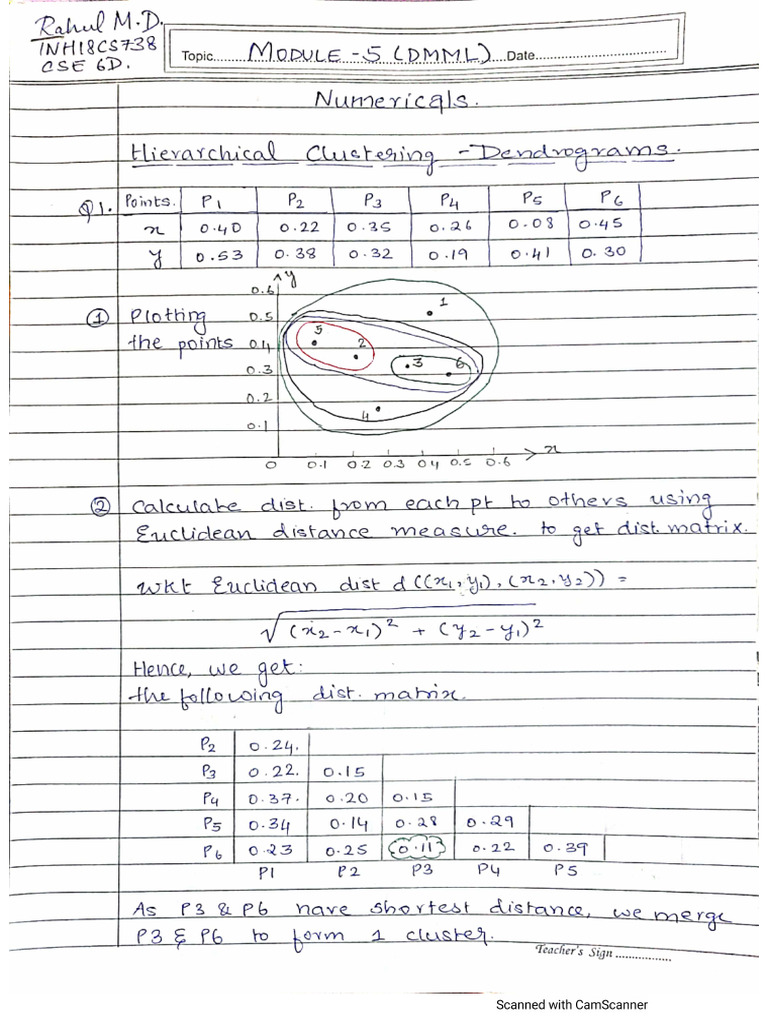 Rahul M.D.
1NH18CS738
CSE 6D.
Topic.......... MODULE -5 (DMML) ....Date......................................
Numericals.
Hierarchical Clustering - Dendrograms.
Q1. Points. P1 P2 P3 P4 P5 P6
x 0.40 0.22 0.35 0.26 0.08 0.45
y 0.53 0.38 0.32 0.19 0.41 0.30
① Plotting
the points
y
0.6
0.5
0.4
0.3
0.2
0.1
1
5
2
3
6
4
0 0.1 0.2 0.3 0.4 0.5 0.6 x
② Calculate dist. from each pt to others using
Euclidean distance measure. to get dist. matrix.
WKt Euclidean dist d((x₁,y₁), (x₂,y₂)) =
√(x₂-x₁)² + (y₂-y₁)²
Hence, we get:
the following dist. matrix.
P2 0.24.
P3 0.22. 0.15
P4 0.37. 0.20 0.15
P5 0.34 0.14 0.28 0.29
P6 0.23 0.25 0.11 0.22 0.39
P1 P2 P3 P4 P5
As P3 & P6 have shortest distance, we merge
P3 & P6 to form 1 cluster.
Teacher's Sign ................
Scanned with CamScanner